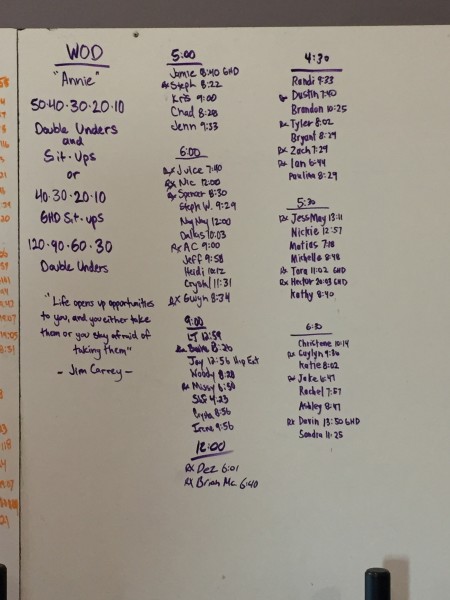 WOD
"Annie"
50.40.30.20.10
Double Unders
and
Sit-Ups
or
40.30.20.10
GHD Sit-ups
120.90.60.30
Double Unders
"Life opens up opportunities
to you, and you either take
them or you stay afraid of
taking them"
- Jim Carrey -
5:00
Jamie 8:40 GHD
Rx Steph 8:22
Kris 9:00
Chad 8:28
Jenn 9:33
6:00
Rx Juice 7:40
Rx Nic 12:00
Rx Spencer 8:30
Steph W. 9:29
Nay Nay 12:00
Dallas 10:03
Rx AC 9:00
Jeff 9:58
Heidi 10:12
Crystal 11:31
Rx Gwyn 8:34
9:00
LT 12:59
Rx 8:26
Jay 12:56 Hip Ext
Woody 8:28
Rx Missy 6:58
4:23
8:56
Irene 9:56
12:00
Rx Dez 6:01
Rx Brian Mc 6:40
4:30
Randi 9:33
Rx Dustin 7:40
Brandon 10:25
Rx Tyler 8:02
Bryant 8:29
Rx Zach 7:29
Rx Ian 6:44
Paulina 8:29
5:30
Rx Jess May 13:11
Nickie 12:57
Matias 7:18
Michelle 8:48
Rx Tara 11:02 GHD
Rx Hector 20:03 GHD
Kathy 8:40
6:30
Christene 10:14
Rx Caylyn 9:30
Katie 8:02
Rx Jake 6:47
Rachel 7:57
Ashley 8:47
Rx Davin 13:50 GHD
Sandra 11:25